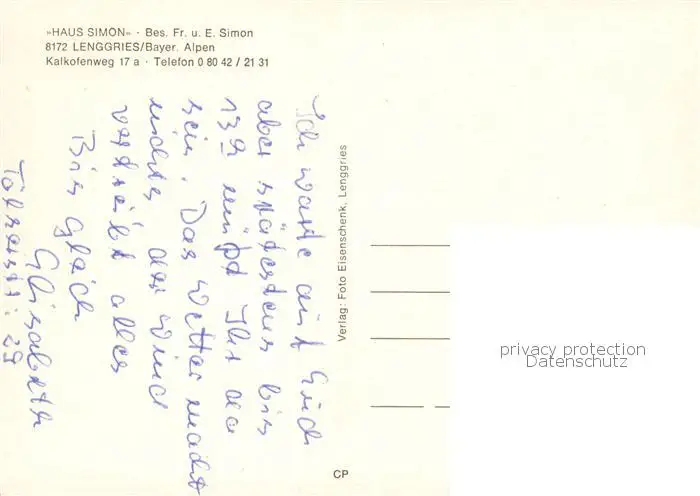 »HAUS SIMON« · Bes. Fr. u. E. Simon
8172 LENGGRIES/Bayer. Alpen
Kalkofenweg 17 a · Telefon 0 80 42 / 21 31
Ich warte auf Euch
aber spätestens bis
13 müßt Ihr da
sein. Das Wetter macht
nichts der Wind
vertreibt alles
Bis gleich
Elisabeth
Tölzerstr. 29
Verlag: Foto Eisenschenk, Lenggries
CP
privacy protection
Datenschutz